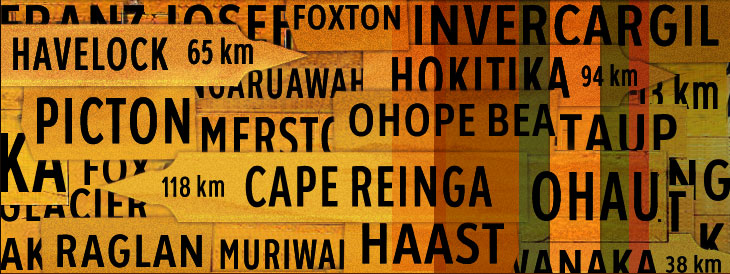 FRANZ JOSEF
FOXTON
INVERCARGIL
HAVELOCK 65 km
HOKITIKA 94 km
NGARUAWAH
PICTON
MERSTO
OHOPE BEA
TAUP
KA
FOX
GLACIER
118 km CAPE REINGA
OHAU
NG
AK
RAGLAN
MURIWAI
HAAST
WANAKA 38 km
K